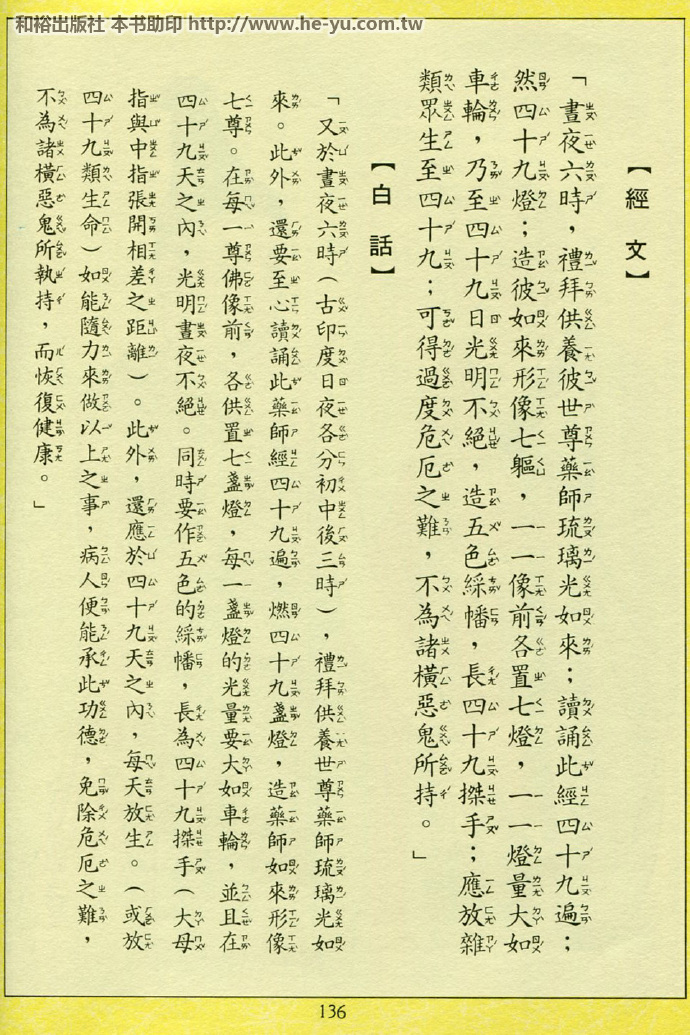 和裕出版社 本书助印 http://www.he-yu.com.tw
【經文】
「晝夜六時，禮拜供養彼世尊藥師琉璃光如來；讀誦此經四十九遍；
然四十九燈；造彼如來形像七軀，一一像前各置七燈，一一燈量大如
車輪，乃至四十九日光明不絕，造五色綵幡，長四十九搩手；應放雜
類眾生至四十九；可得過度危厄之難，不為諸橫惡鬼所持。」
【白話】
「又於晝夜六時（古印度日夜各分初中後三時），禮拜供養世尊藥師琉璃光如
來。此外，還要至心讀誦此藥師經四十九遍，燃四十九盞燈，造藥師如來形像
七尊。在每一尊佛像前，各供置七盞燈，每一盞燈的光量要大如車輪，並且在
四十九天之內，光明晝夜不絕。同時要作五色的綵幡，長為四十九搩手（大母
指與中指張開相差之距離）。此外，還應於四十九天之內，每天放生。（或放
四十九類生命）如能隨力來做以上之事，病人便能承此功德，免除危厄之難，
不為諸橫惡鬼所執持，而恢復健康。」
136